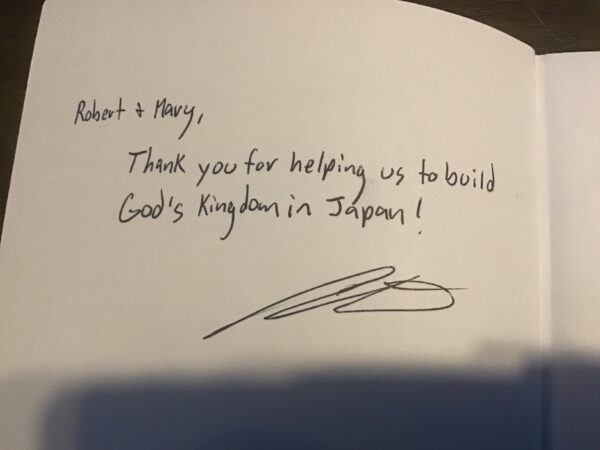 Robert + Mary,
Thank you for helping us to build
God's Kingdom in Japan!